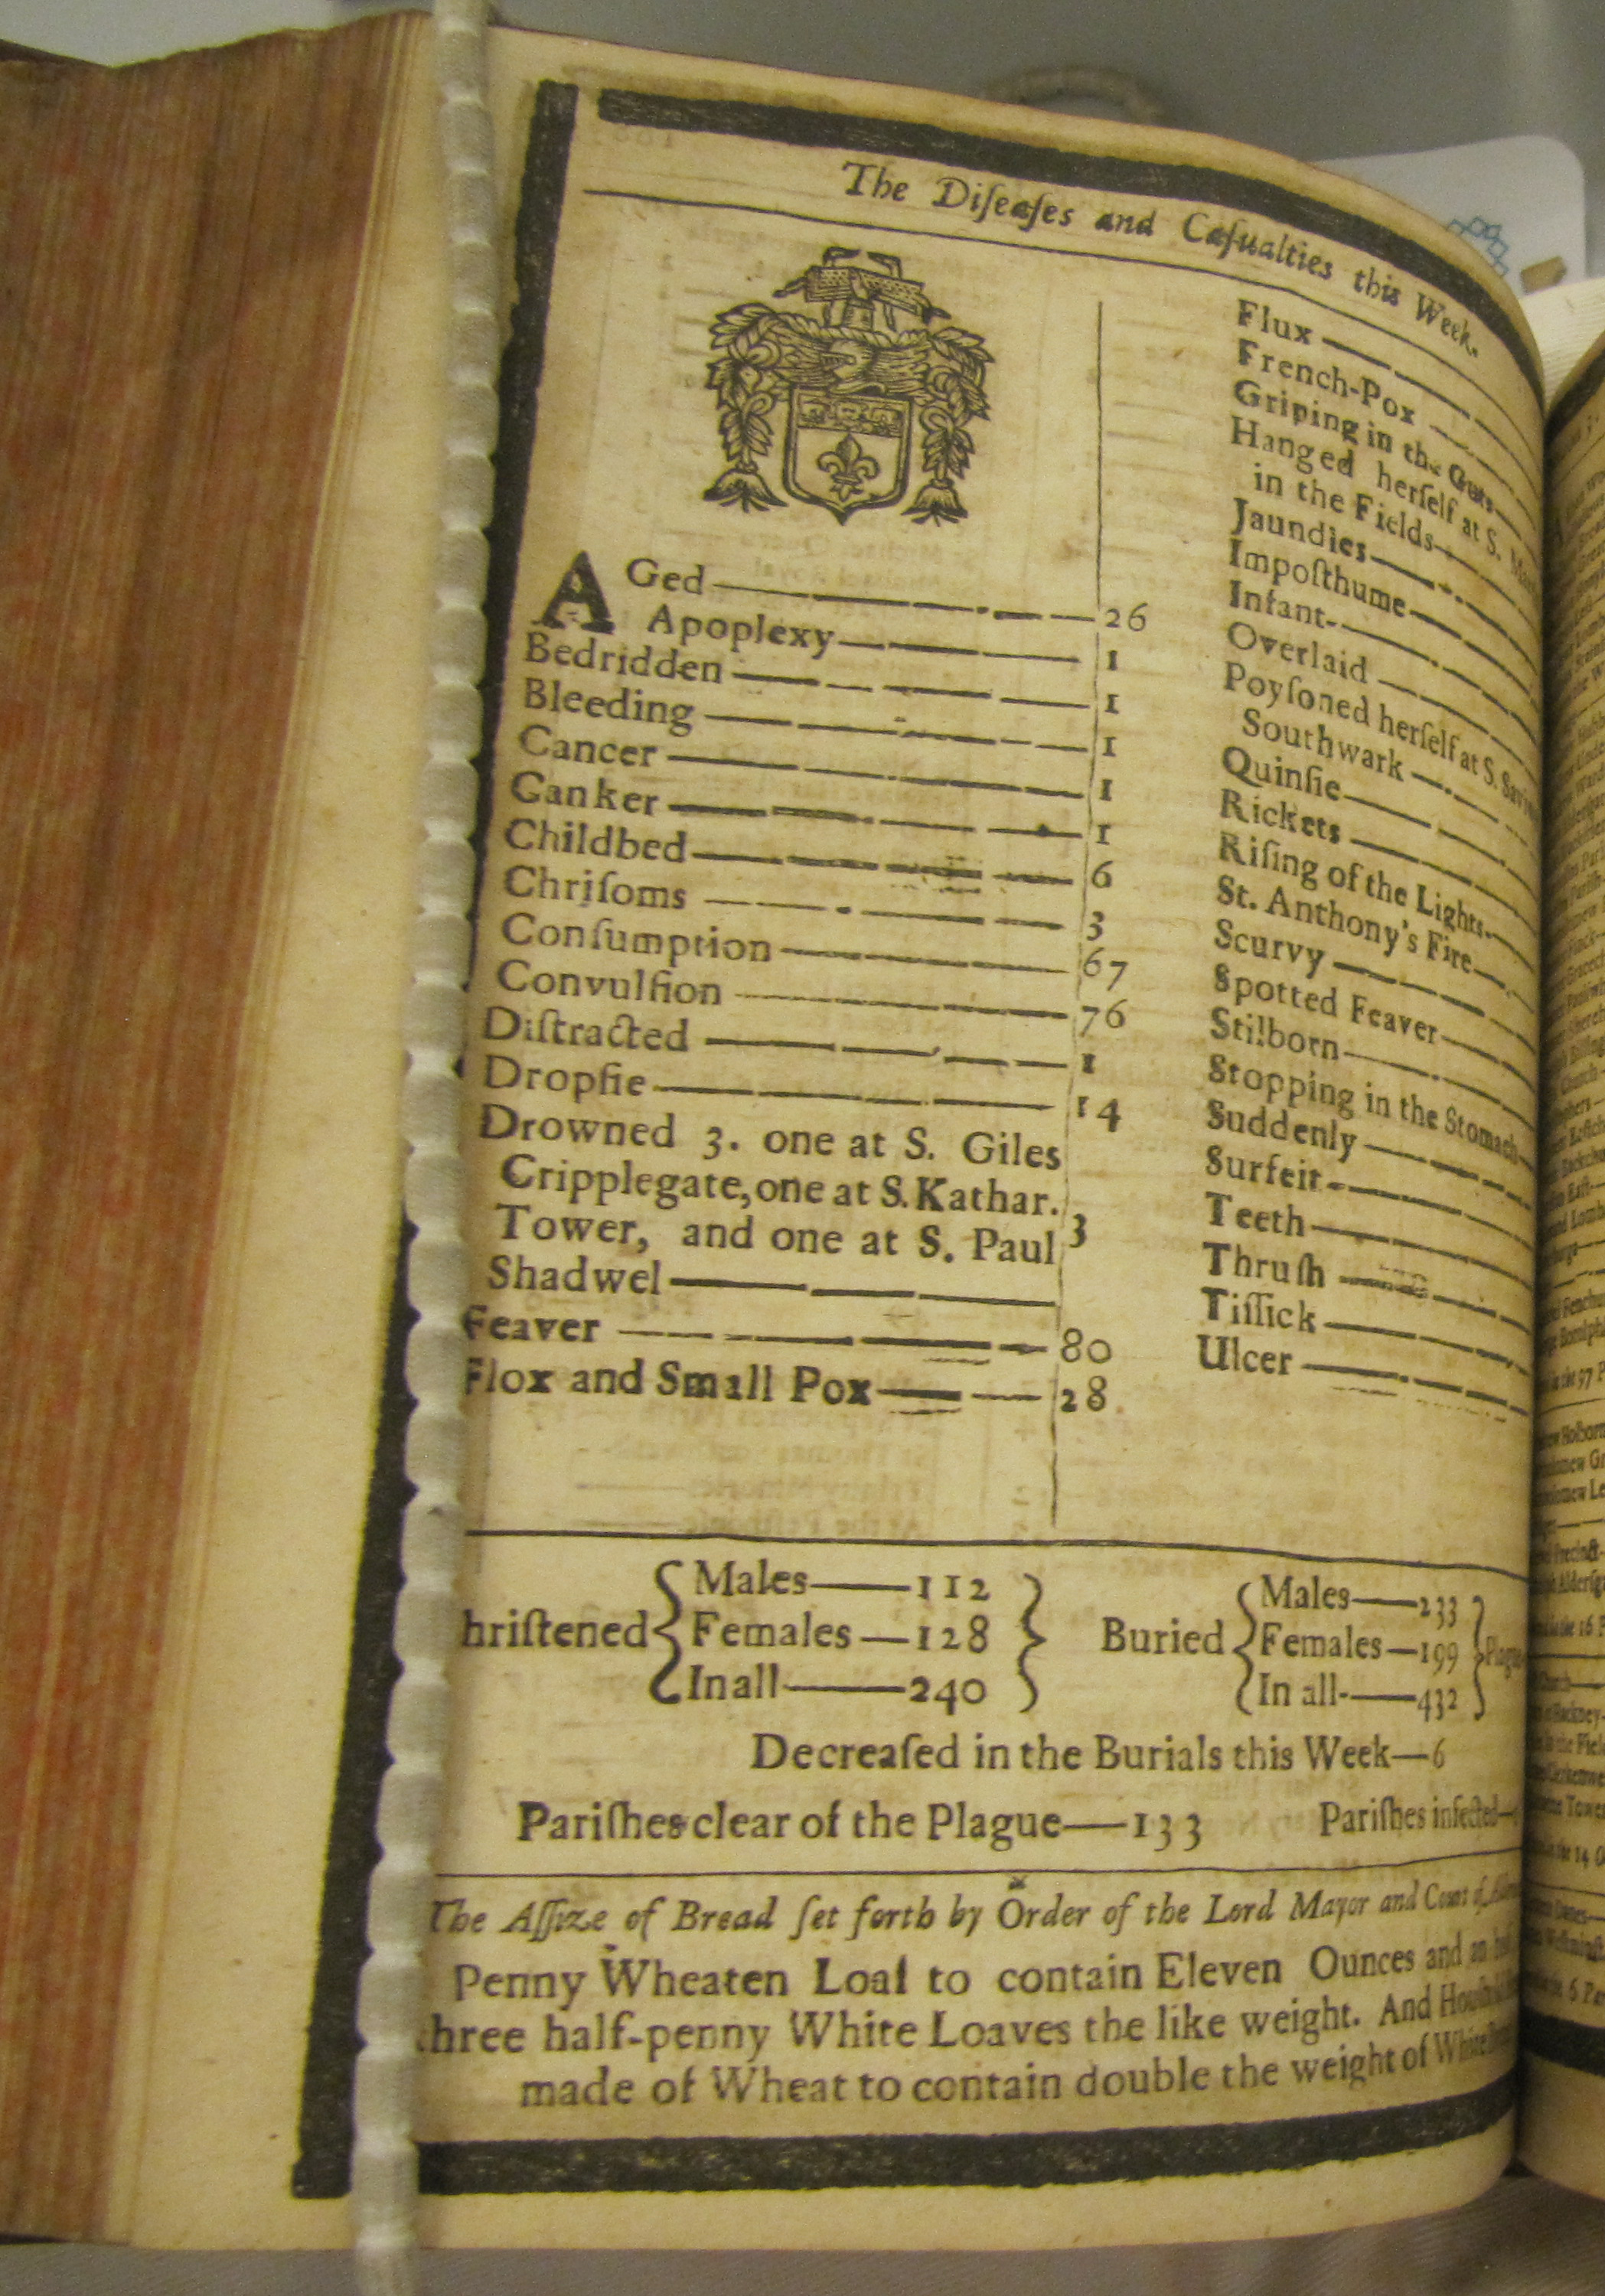 The Diſeaſes and Caſualties this Week.
AGed 26
Apoplexy 1
Bedridden 1
Bleeding 1
Cancer 1
Canker 1
Childbed 6
Chriſoms 3
Conſumption 67
Convulſion 76
Diſtracted 1
Dropſie 14
Drowned 3. one at S. Giles
Cripplegate, one at S. Kathar.
Tower, and one at S. Paul 3
Shadwel
Feaver 80
Flox and Small Pox 28
Flux
French-Pox
Griping in the Guts
Hanged herſelf at S.
in the Fields
Jaundies
Impoſthume
Infant
Overlaid
Poyſoned herſelf at S.
Southwark
Quinſie
Rickets
Riſing of the Lights
St. Anthony's Fire
Scurvy
Spotted Feaver
Stilborn
Stopping in the Stomach
Suddenly
Surfeit
Teeth
Thruſh
Tiſſick
Ulcer
Males 112
hriſtened Females 128
In all 240
Males 233
Buried Females 199 Plague
In all 432
Decreaſed in the Burials this Week 6
Pariſhes clear of the Plague 133 Pariſhes infected
The Aſſize of Bread ſet forth by Order of the Lord Mayor and Court of
Penny Wheaten Loaf to contain Eleven Ounces and an
three half-penny White Loaves the like weight. And
made of Wheat to contain double the weight of